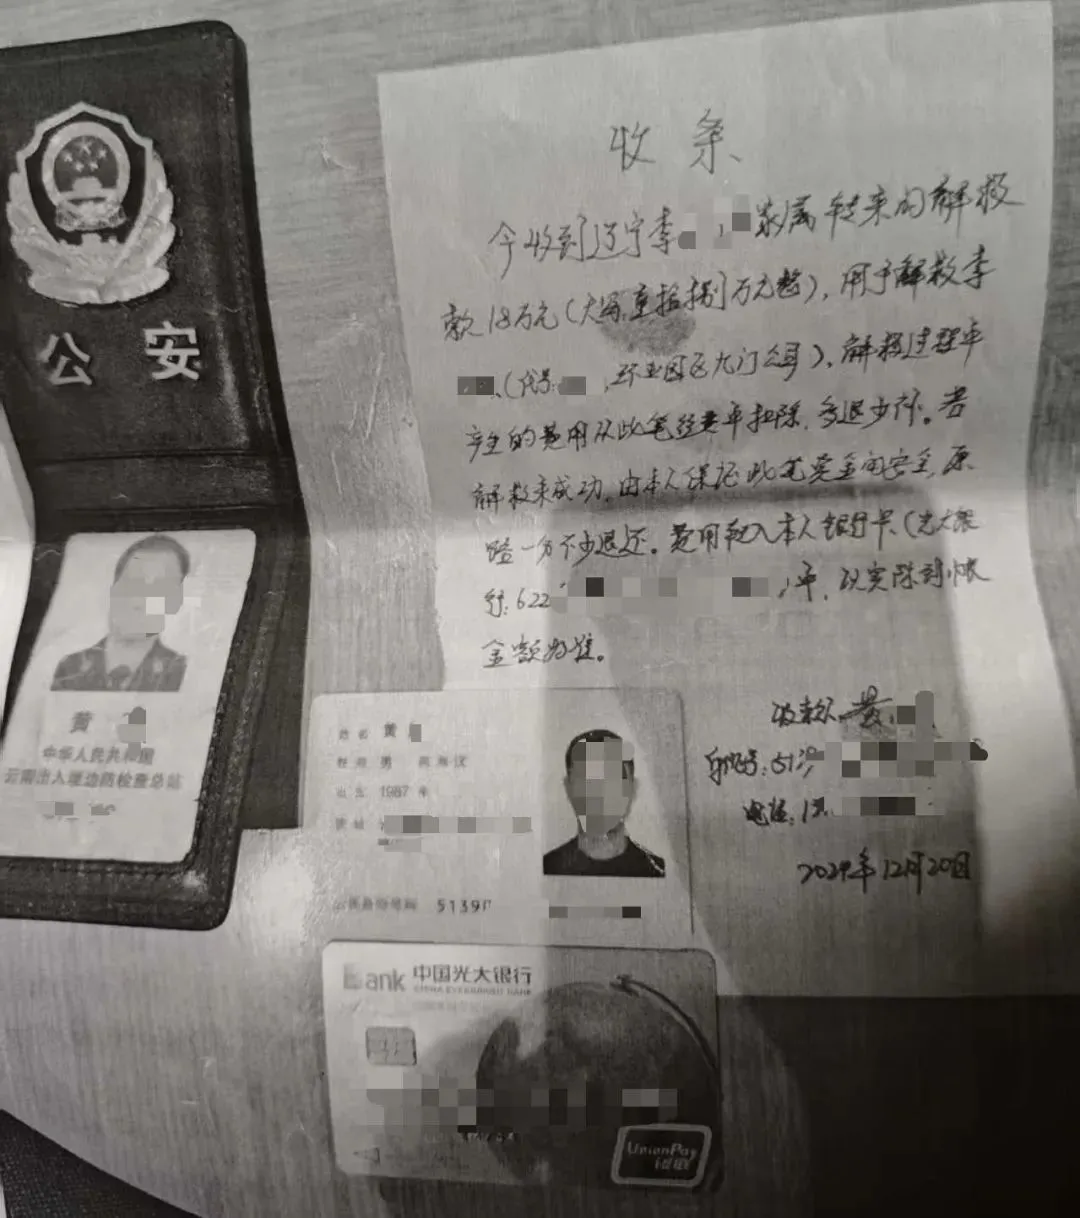 公安
黄
中华人民共和国
云南出入境边防检查总站
收条
今收到辽宁李 家属转来的解救
款18万元(大写:壹拾捌万元整),用于解救李
(代号: ,环亚园区九门公司),解救过程中
产生的费用从此笔经费中扣除,多退少补。若
解救未成功,由本人保证此笔资金的安全,原
路一分不少退还。费用转入本人银行卡(光大银
行:622 )中,以实际到帐
金额为准。
收款人:黄
身份证号:513
电话:1
2024年12月20日
姓名 黄
性别 男 民族 汉
出生 1987 年
住址
公民身份号码 5139
Bank 中国光大银行
CHINA EVERBRIGHT BANK
UnionPay
银联